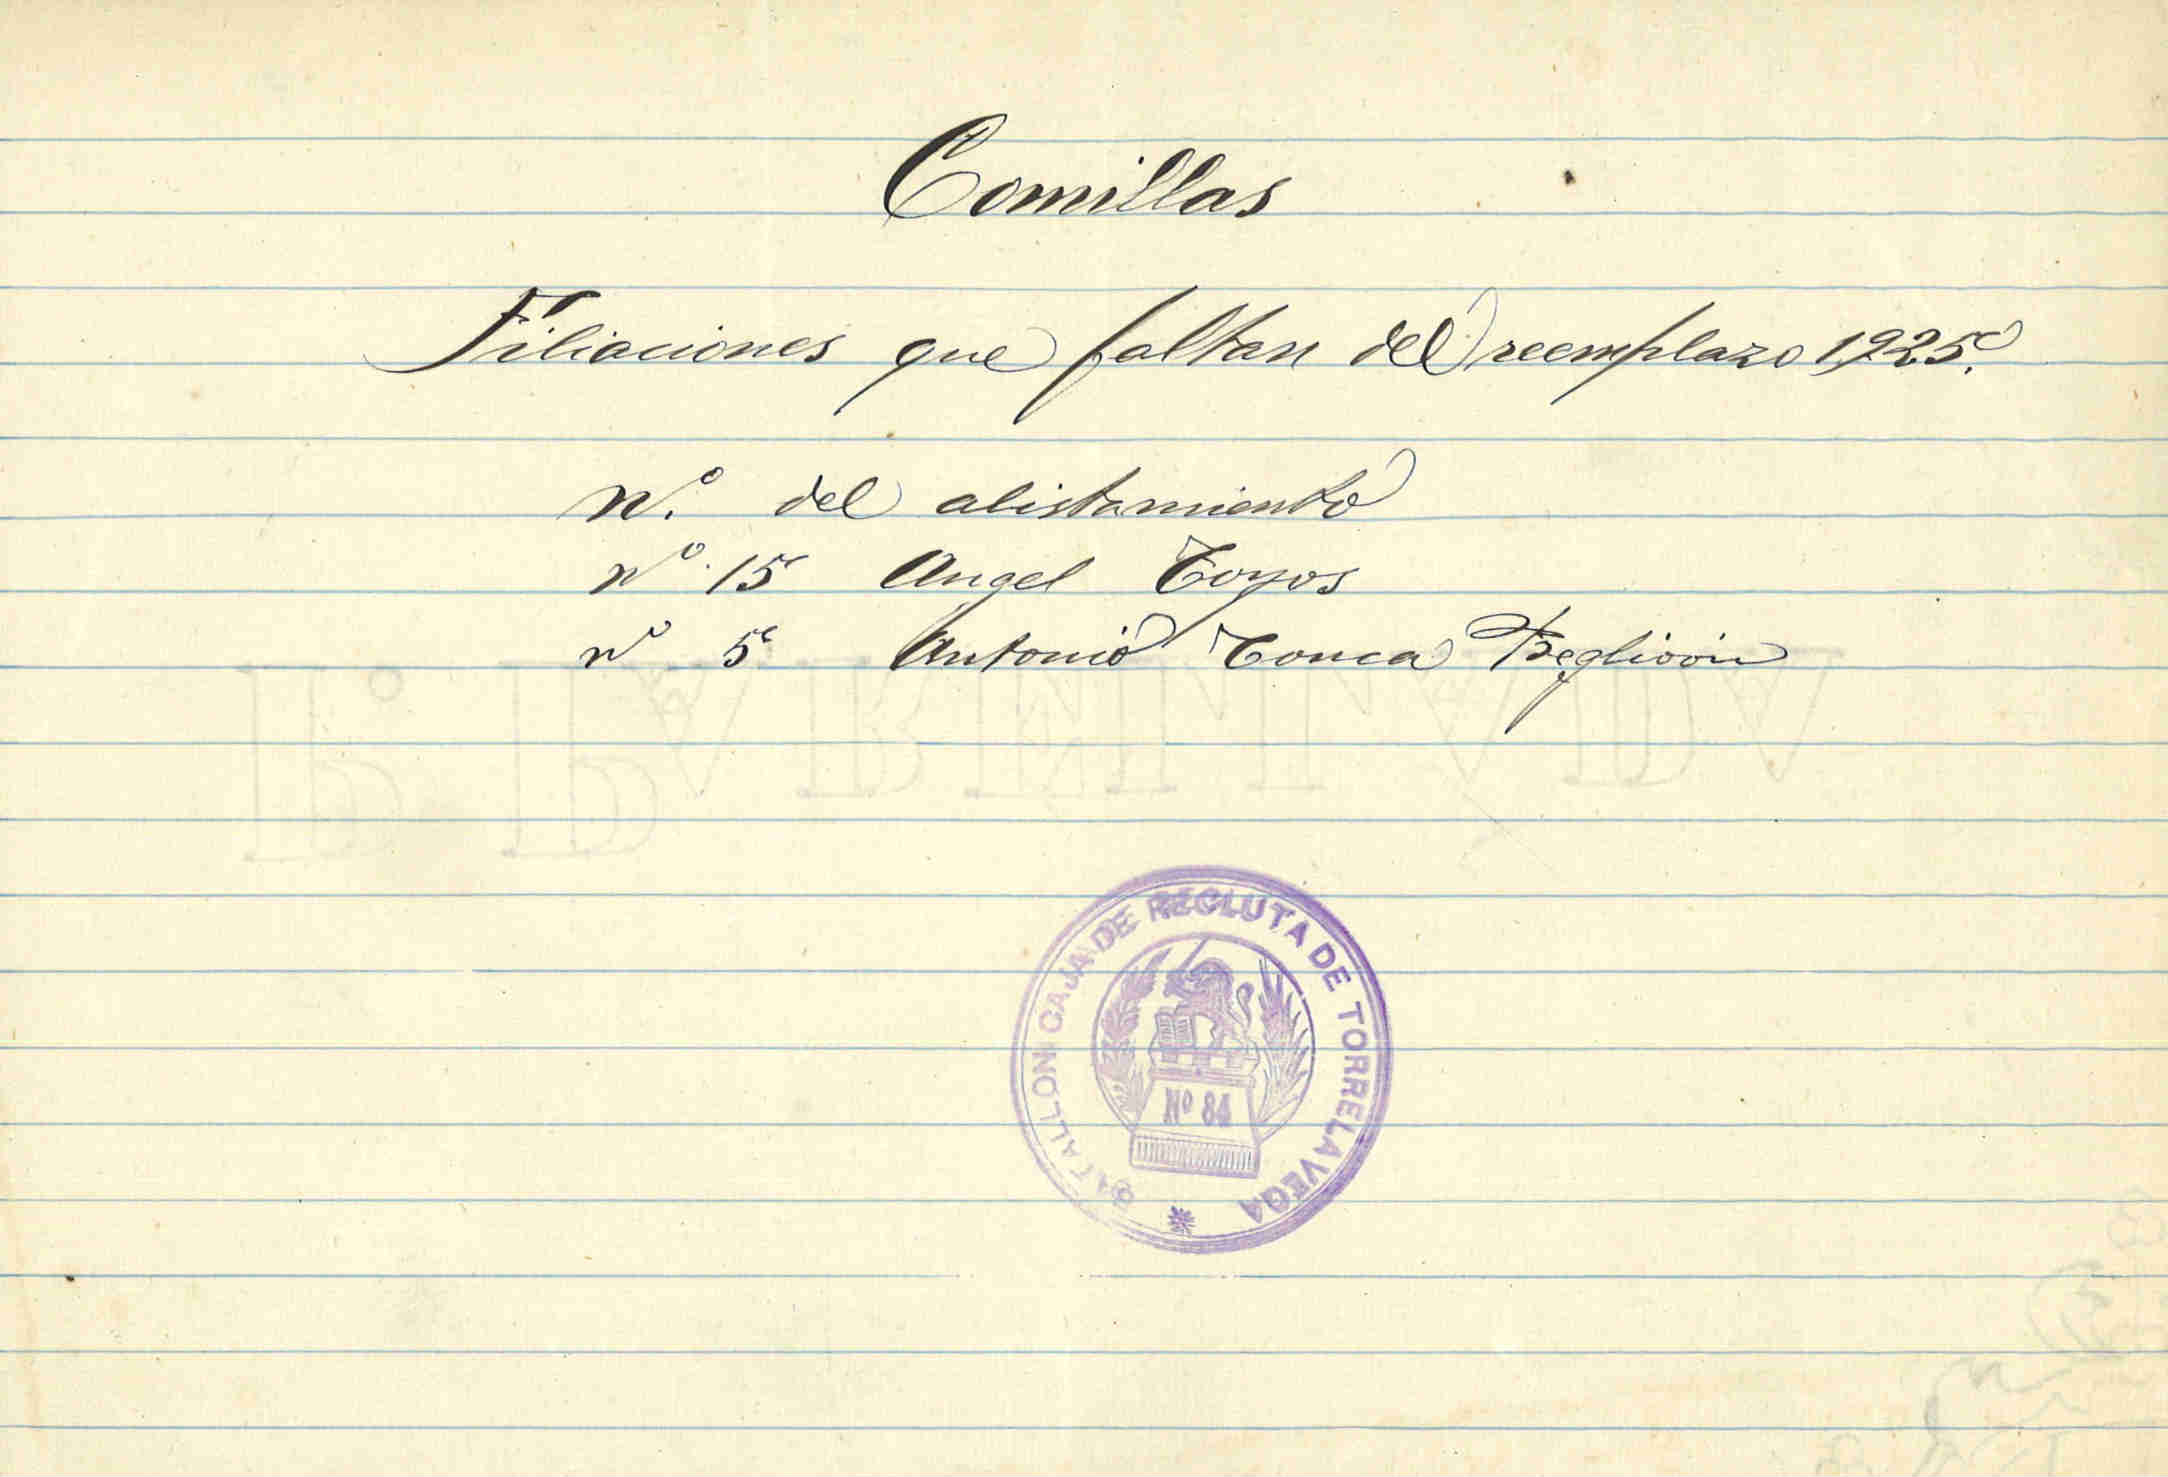 Comillas
Filiaciones que faltan del reemplazo 1925.
nº. del alistamiento
nº. 15 Angel Toyos
nº 5 Antonio Conca
BATALLON CAJA DE RECLUTA DE TORRELAVEGA
Nº 84